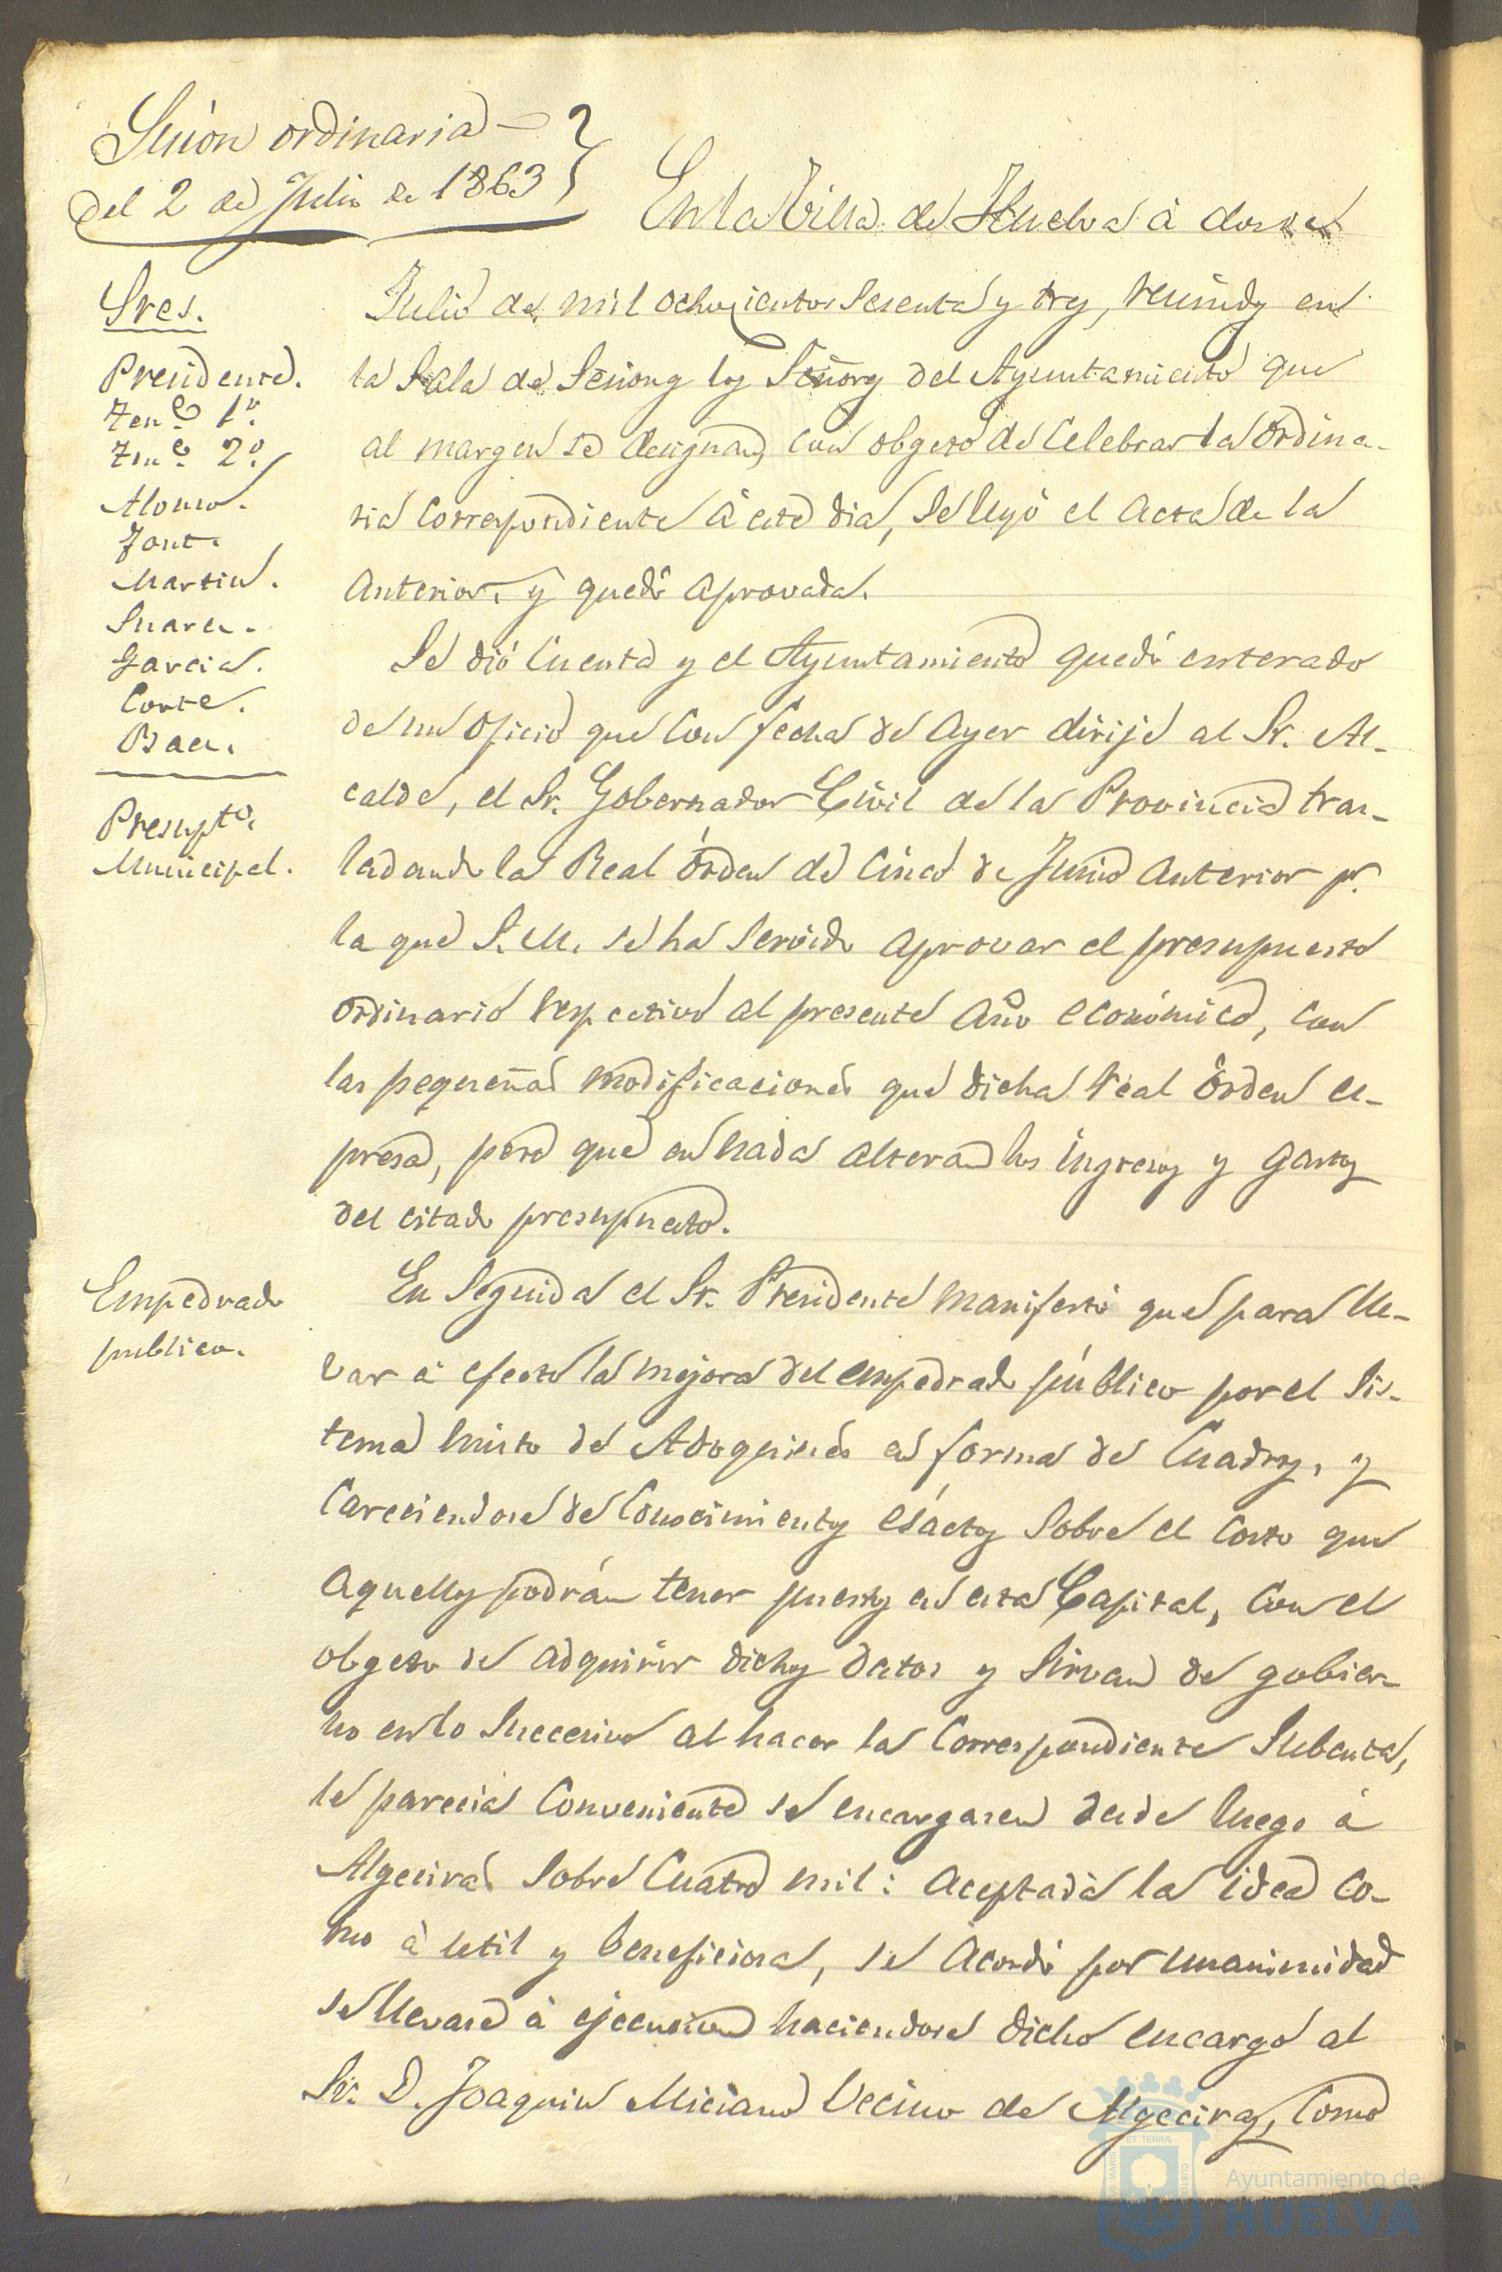 Sesion ordinaria
del 2 de Julio de 1863
En la Villa de Huelva á dos de
Sres.
Presidente.
Tene. 1º.
Tene. 2º.
Alonso.
Font.
Martin.
Suarez.
Garcia.
Corte.
Baez.
Julio de mil ochocientos sesenta y tres, reunidos en
la Sala de Sesiones los Señores del Ayuntamiento que
al margen se designan, con obgeto de celebrar la ordina-
ria correspondiente á este dia, se leyó el acta de la
anterior, y quedó aprovada.
Presupto.
Municipal.
Se dió cuenta y el Ayuntamiento quedó enterado
de un oficio que con fecha de ayer dirije al Sr. Al-
calde, el Sr. Gobernador Civil de la Provincia tras-
ladando la Real órden de cinco de Junio anterior pr.
la que S. M. se ha servido aprovar el presupuesto
ordinario respectivo al presente año económico, con
las pequeñas modificaciones que dicha real órden es-
presa, pero que en nada alteran los ingresos y gastos
del citado presupuesto.
Empedrado
publico.
En seguida el Sr. Presidente manifestó que para lle-
var á efecto la mejora del empedrado público por el sis-
tema misto de Adoquines en forma de cuadros, y
careciendose de conocimientos esáctos sobre el costo que
aquellos podrán tener puestos en esta Capital, con el
obgeto de adquirir dichos datos y sirvan de gobier-
no en lo succesivo al hacer la correspondiente subasta,
le parecia conveniente se encargasen desde luego á
Algeciras sobre cuatro mil: aceptada la idea co-
mo á util y beneficiosa, se acordó por unanimidad
se llevase á ejecucion haciendose dicho encargo al
Sr. D. Joaquin Miciano vecino de Algeciras, como
Ayuntamiento de
HUELVA